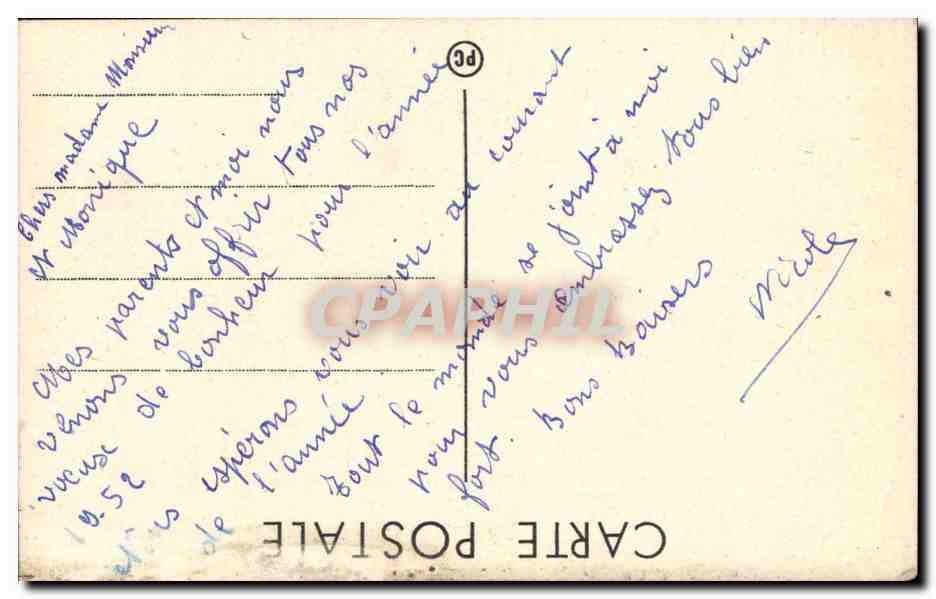 Chers madame Monsieur
et Monique
Mes parents et moi nous
venons vous offrir tous nos
voeux de bonheur pour l'année
19.52
espérons vous voir au courant
de l'année.
Tout le monde se joint à moi
pour vous embrasser tous bien
fort. Bons Baisers
Nicole
CARTE POSTALE
PC
CPAPHIL